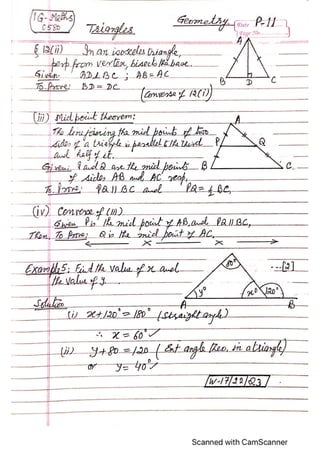 IG-Maths
C580
Triangles
Geometry
Date P-11
Page No.
§ 12(ii) In an isosceles triangle,
perp from vertex, bisects the base.
Given AD⊥BC ; AB=AC
To Prove: BD = DC.
(Converse of 12(i))
A
B D C
(iii) Mid point theorem:
The line joining the mid points of two
sides of a triangle is parallel to the third
and half of it.
Given: P and Q are the mid points
of sides AB and AC resp,
To Prove: PQ || BC and PQ = 1/2 BC,
A
P Q
B C
(iv) Converse of (iii)
Given P is the mid point of AB, and PQ || BC,
Then, To Prove: Q is the mid point of AC,
x x
Example 5: Find the value of x and
the value of y.
80° ---[2]
y° x° 120°
A B
Solution
(i) x+120° = 180° (straight angle)
∴ x = 60° ✓
(ii) y+80 = 120 (Ext angle theo. in a triangle)
or y = 40° ✓
W-17/22/Q3
Scanned with CamScanner